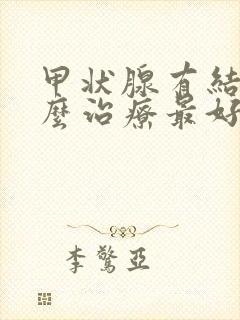 甲状腺有結
麼治療最好
李驚亞